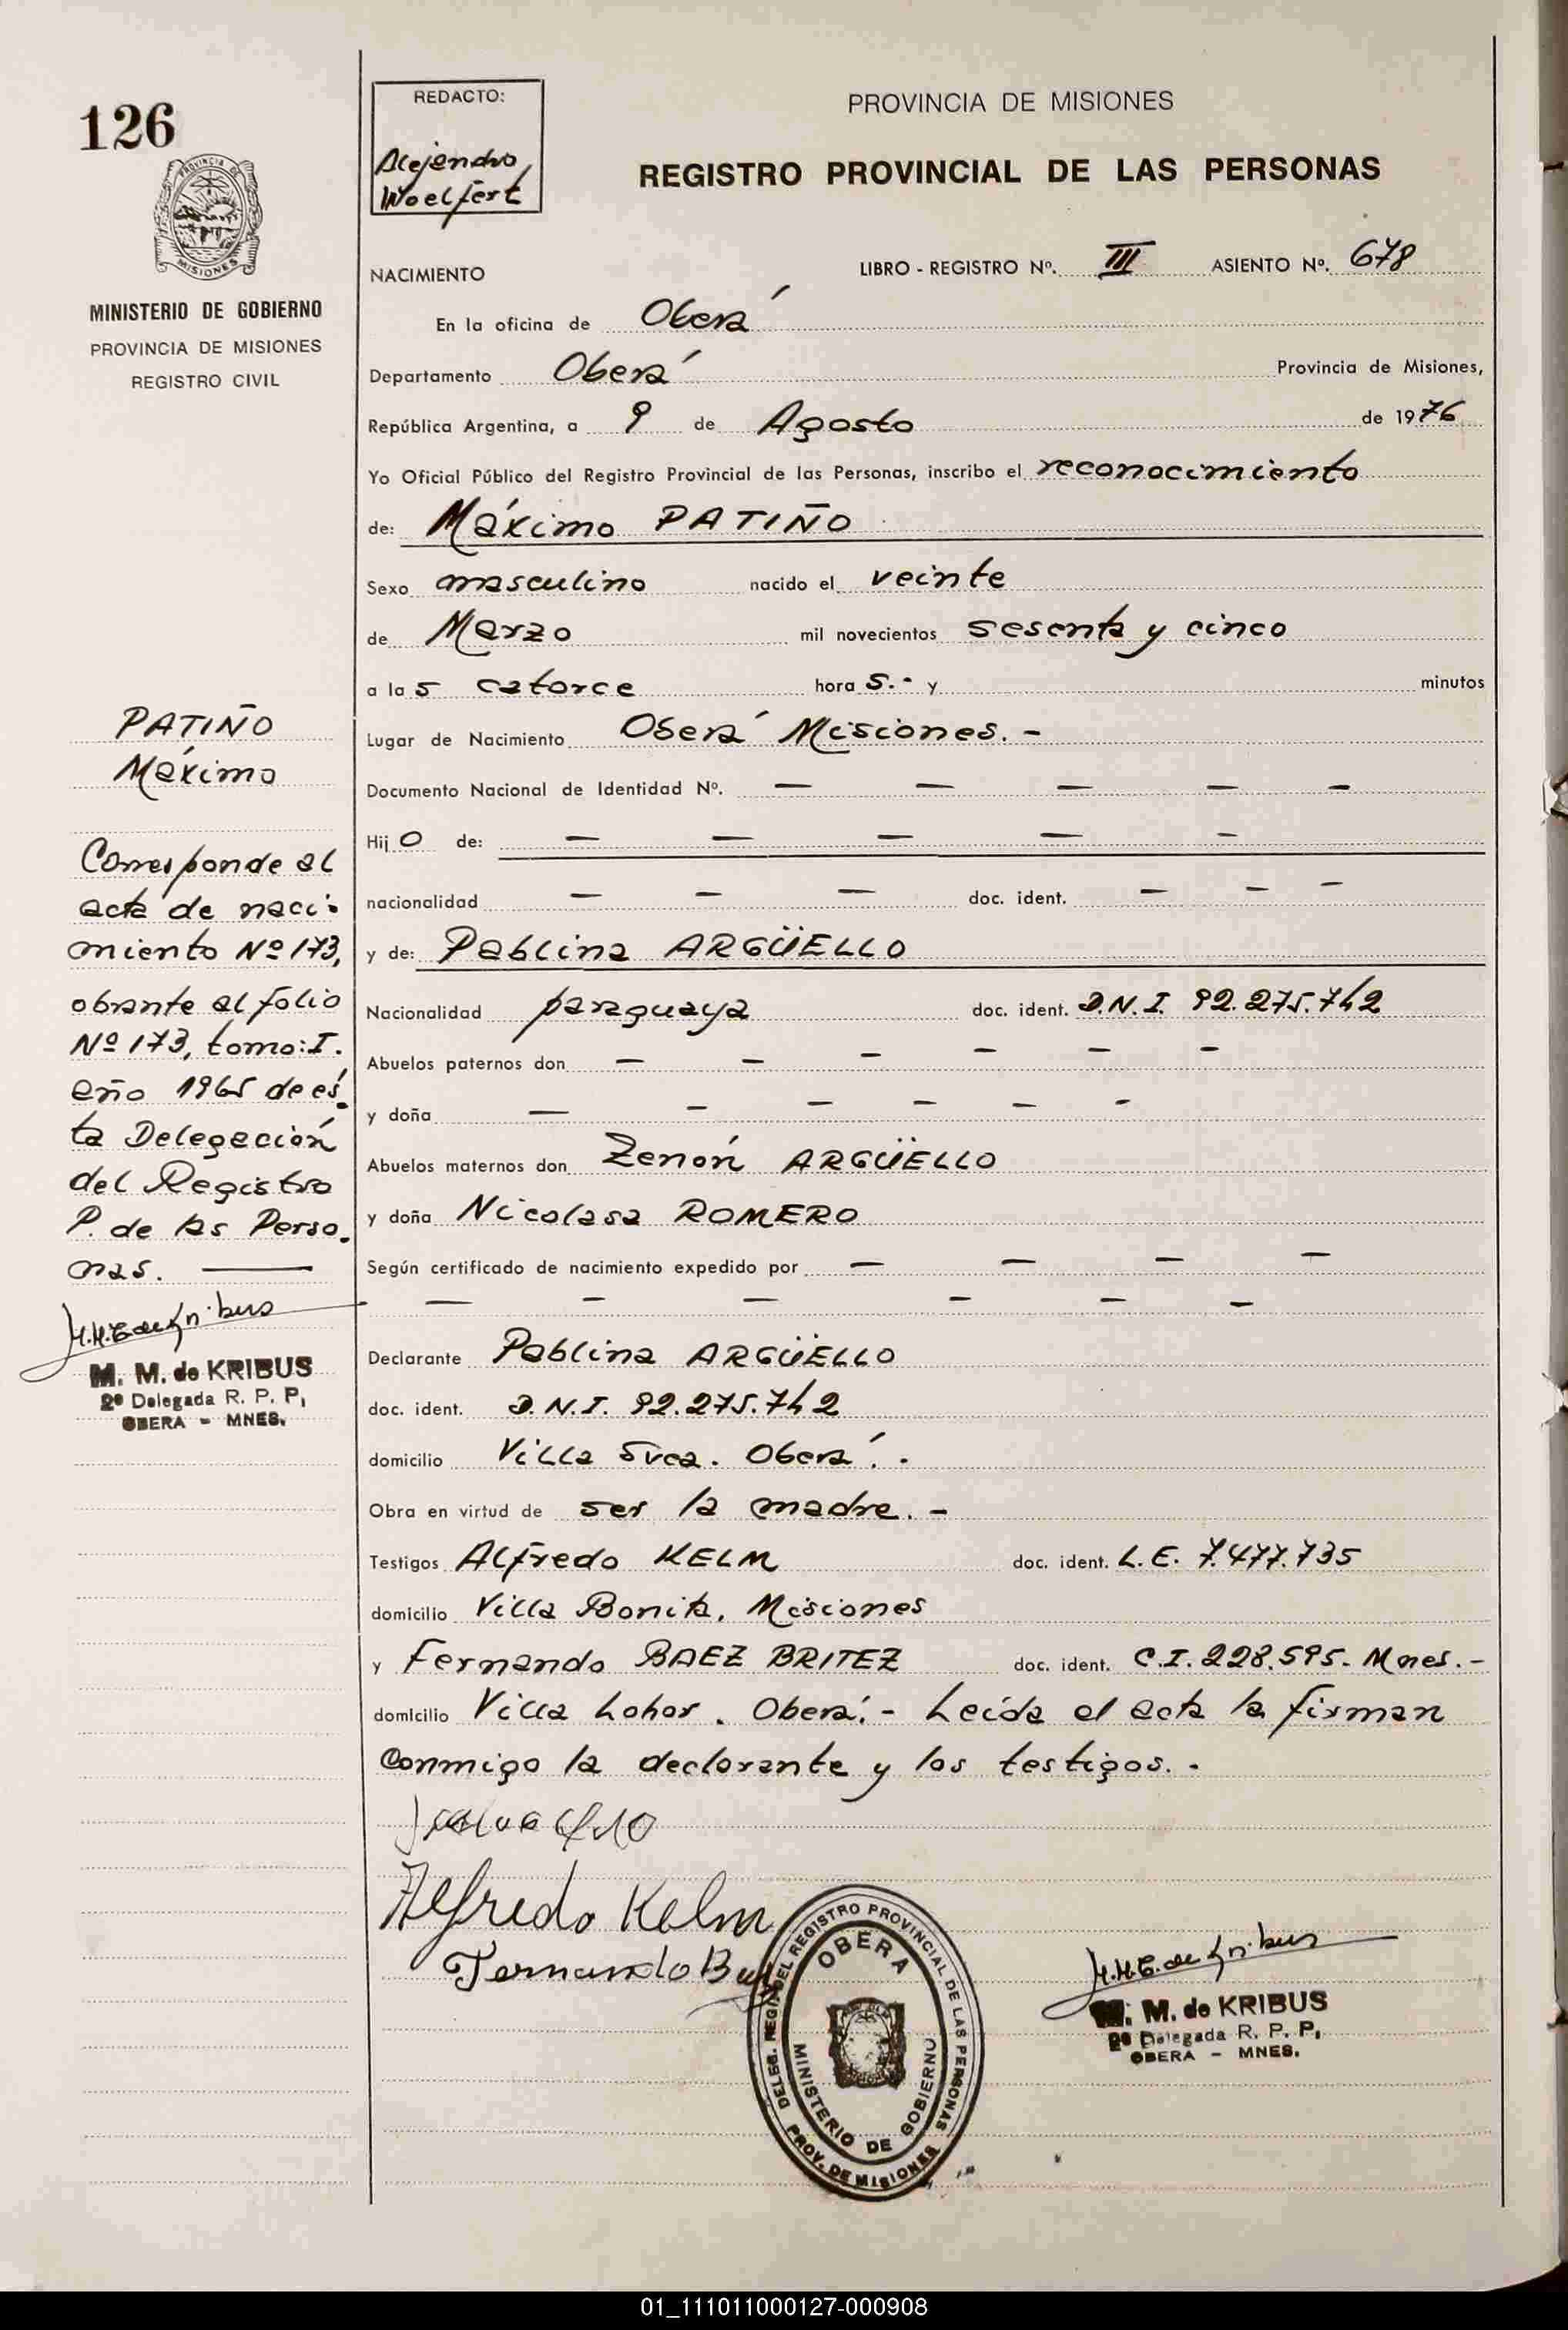 126
MINISTERIO DE GOBIERNO
PROVINCIA DE MISIONES
REGISTRO CIVIL
REDACTO:
Alejandro
Woelfert
PROVINCIA DE MISIONES
REGISTRO PROVINCIAL DE LAS PERSONAS
NACIMIENTO LIBRO - REGISTRO Nº. III ASIENTO Nº. 678
En la oficina de Oberá
Departamento Oberá Provincia de Misiones,
República Argentina, a 9 de Agosto de 1976
Yo Oficial Público del Registro Provincial de las Personas, inscribo el reconocimiento
de: Máximo PATIÑO
Sexo masculino nacido el veinte
de Marzo mil novecientos sesenta y cinco
a la s catorce hora s.- y minutos
Lugar de Nacimiento Oberá Misiones. -
Documento Nacional de Identidad Nº. — — — — —
Hij o de: — — — — —
nacionalidad — — — doc. ident. — — —
y de: Pablina ARGÜELLO
Nacionalidad paraguaya doc. ident. D.N.I. 92.275.742
Abuelos paternos don — — — — — —
y doña — — — — — —
Abuelos maternos don Zenón ARGÜELLO
y doña Nicolasa ROMERO
Según certificado de nacimiento expedido por — — — —
— — — — — —
Declarante Pablina ARGÜELLO
doc. ident. D.N.I. 92.275.742
domicilio Villa Svea. Oberá. -
Obra en virtud de ser la madre. -
Testigos Alfredo KELM doc. ident. L.E. 7.477.735
domicilio Villa Bonita, Misiones
y Fernando BAEZ BRITEZ doc. ident. C.I. 228.595- Mnes. -
domicilio Villa Lohor. Oberá. - Leída el acta la firman
conmigo la declarante y los testigos. -
Alfredo Kelm
Fernando
DELEG. REGI. DEL REGISTRO PROVINCIAL DE LAS PERSONAS
OBERA
MINISTERIO DE GOBIERNO
PROV. DE MISIONES
M. M. de KRIBUS
2º Delegada R. P. P,
OBERA - MNES.
PATIÑO
Máximo
Corresponde al
acta de naci-
miento Nº 173,
obrante al folio
Nº 173, tomo: I.
año 1965 de es-
ta Delegación
del Registro
P. de las Perso-
nas. —
M. M. de KRIBUS
2º Delegada R. P. P,
OBERA - MNES.
01_111011000127-000908